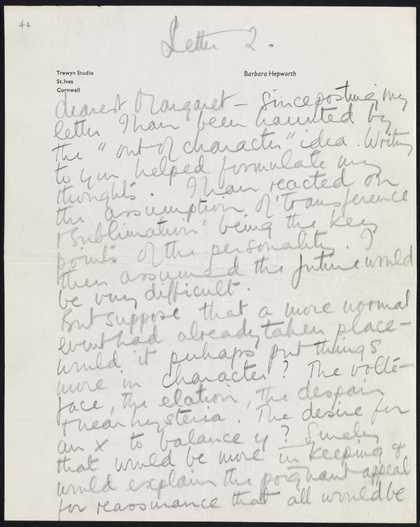 44
Letter 2.
Trewyn Studio
St. Ives
Cornwall
Barbara Hepworth
dearest Margaret – Since posting my
letter I have been haunted by
the "out of character" idea. Writing
to you helped formulate my
thoughts. I have reacted on
the assumption of 'transference
& sublimation' being the key
points of the personality. I
then assumed the future would
be very difficult.
But suppose that a more normal
event had already taken place –
would it perhaps put things
more in character? The volte-
face, the elation, the despair
& near hysteria. The desire for
an x to balance y? Surely
that would be more in keeping &
would explain the poignant appeal
for reassurance that all would be